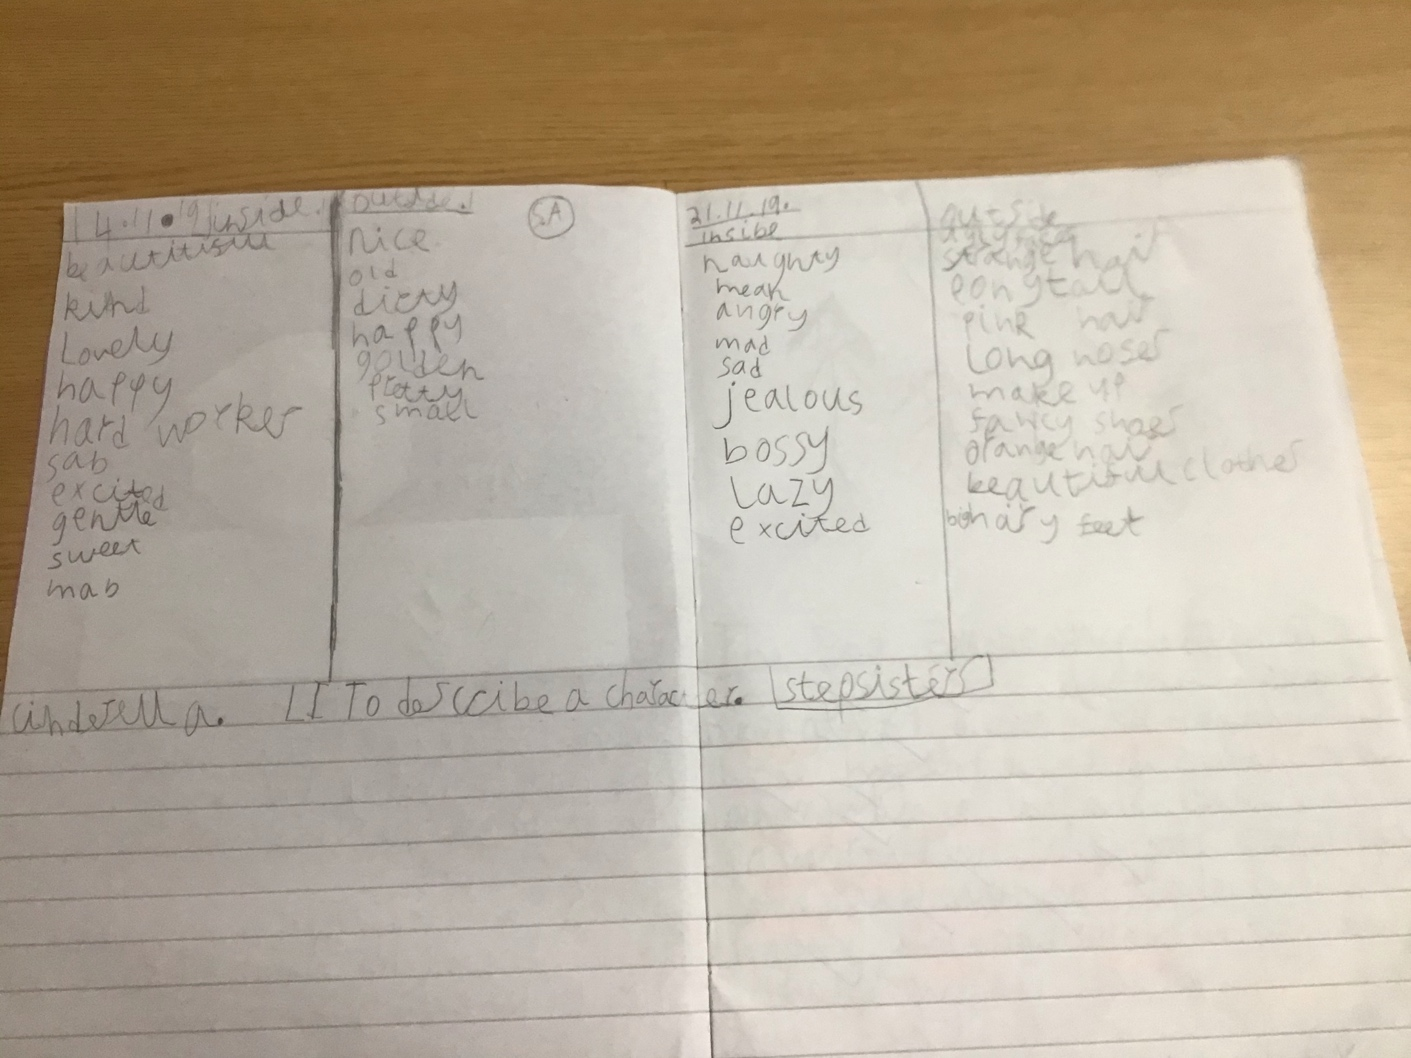 14.11.19 inside.
beautitisuu
kind
Lovely
happy
hard worker
sab
excited
gentle
sweet
mab
outside.
SA
nice
old
dirty
happy
golden
pretty
small
21.11.19.
insibe
naughty
mean
angry
mad
sad
jealous
bossy
Lazy
excited
outside
strange hair
ponytail
pink hair
Long noses
make up
fancy shoes
orange hair
beautiful clothes
big hairy feet
cinderella. LI To describe a character. stepsisters